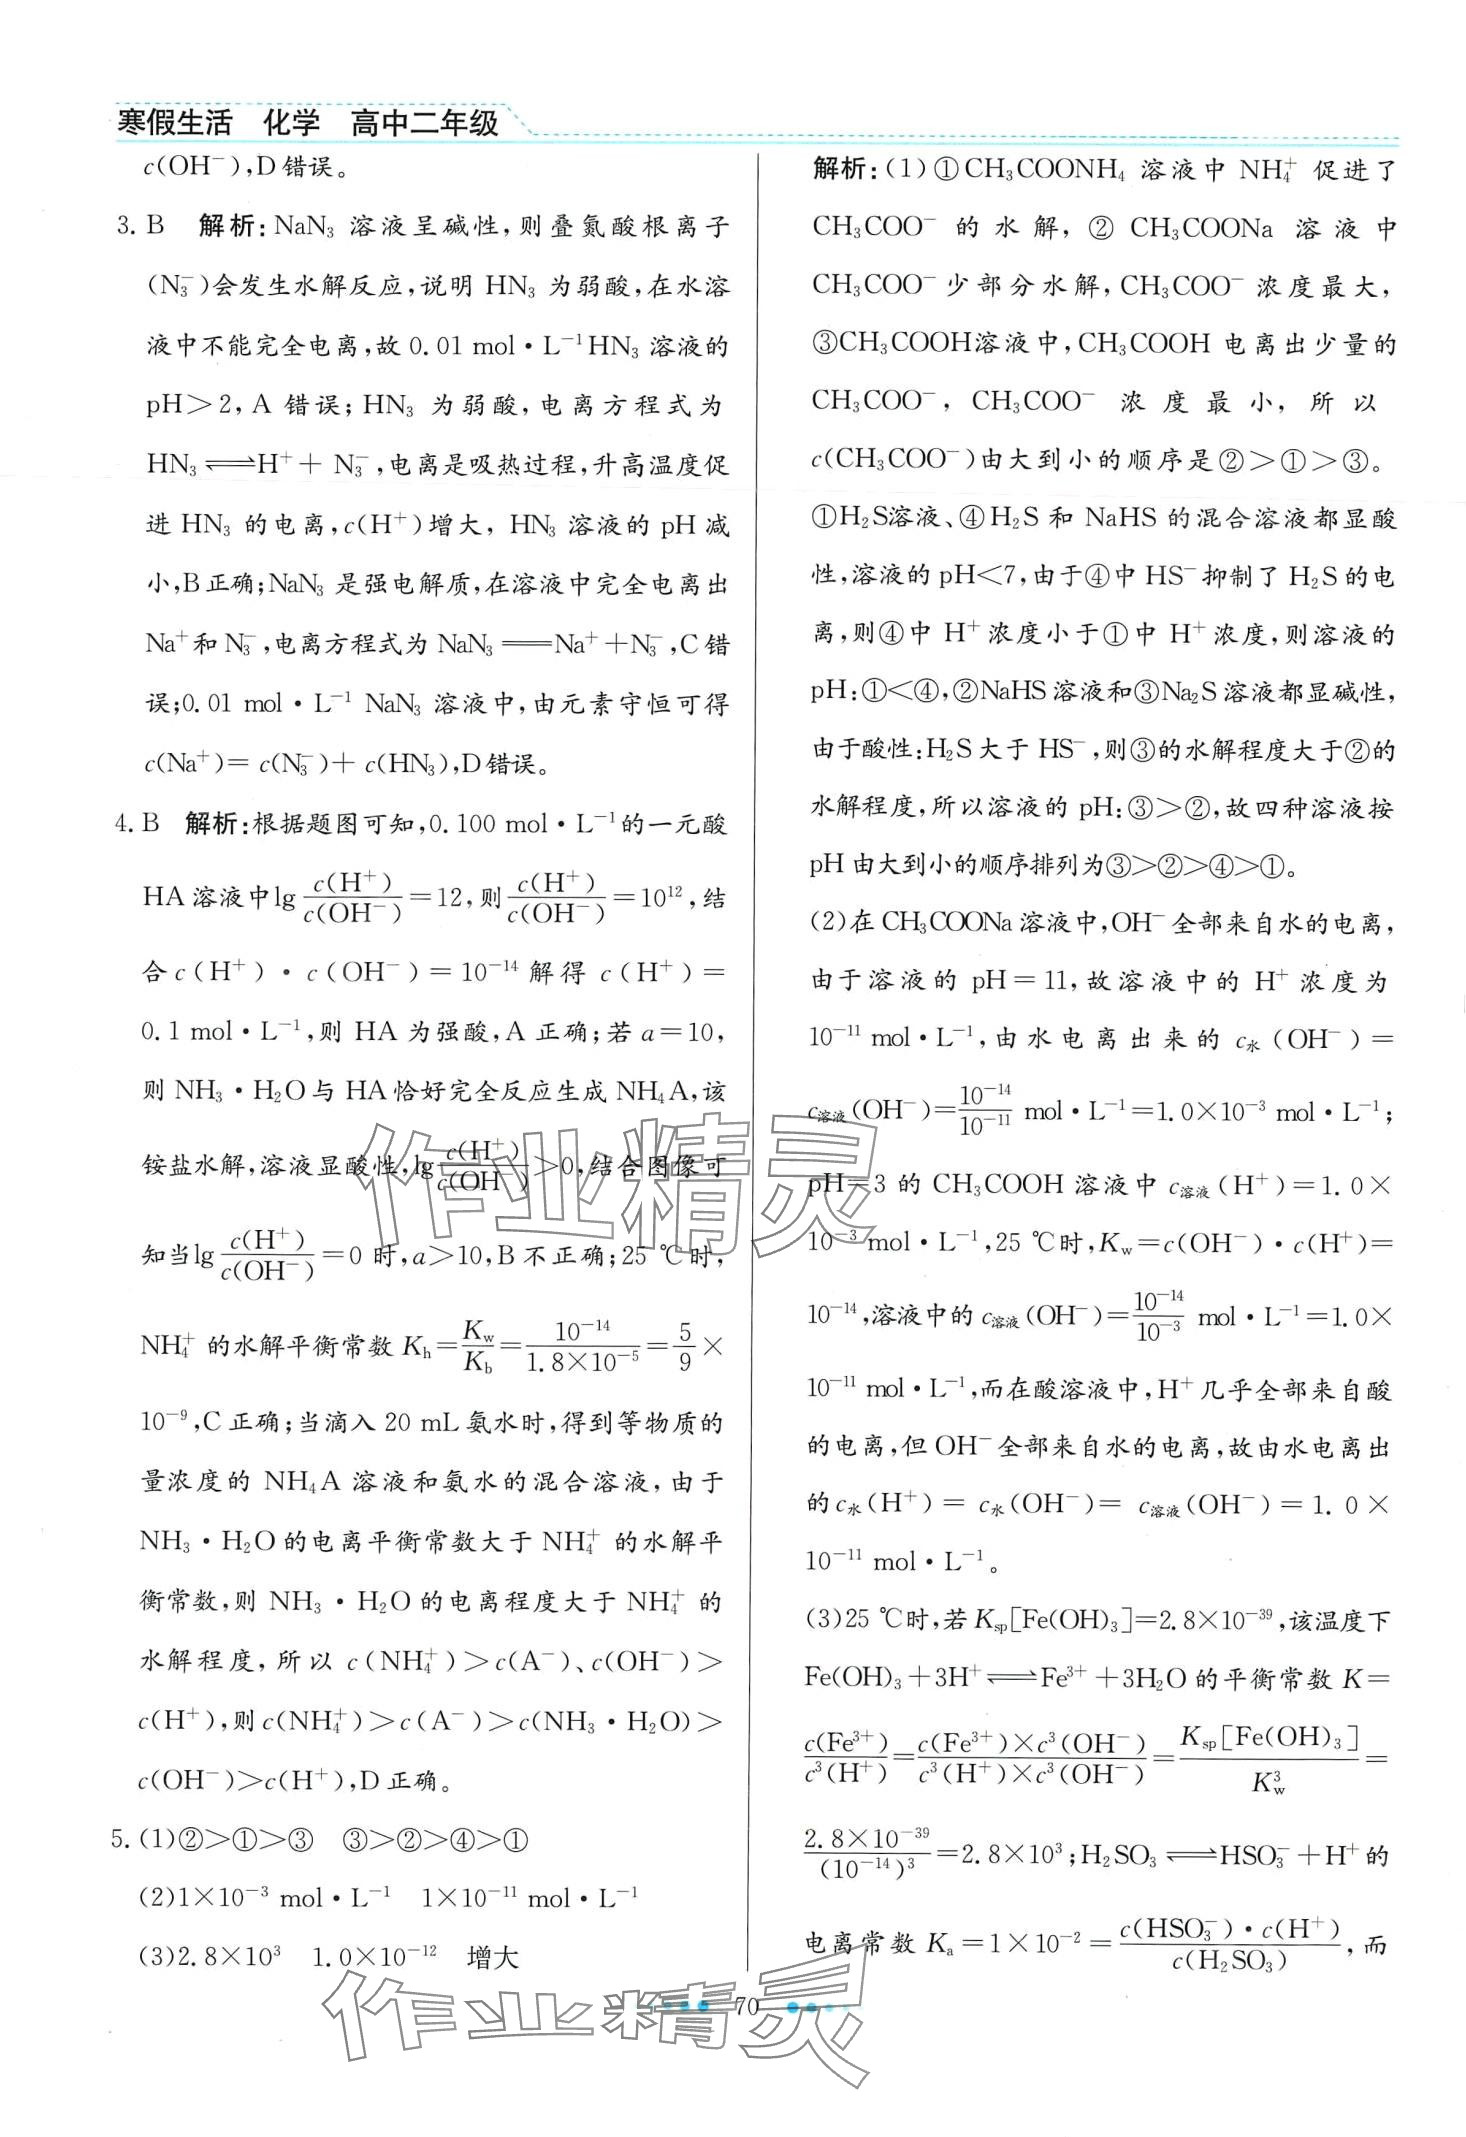 寒假生活 化学 高中二年级
c(OH⁻),D错误。
3. B 解析:NaN₃ 溶液呈碱性,则叠氮酸根离子
(N₃⁻)会发生水解反应,说明 HN₃ 为弱酸,在水溶
液中不能完全电离,故 0.01 mol·L⁻¹HN₃ 溶液的
pH>2,A 错误;HN₃ 为弱酸,电离方程式为
HN₃⇌H⁺+N₃⁻,电离是吸热过程,升高温度促
进 HN₃ 的电离,c(H⁺)增大,HN₃ 溶液的 pH 减
小,B正确;NaN₃ 是强电解质,在溶液中完全电离出
Na⁺和N₃⁻,电离方程式为 NaN₃══Na⁺+N₃⁻,C错
误;0.01 mol·L⁻¹ NaN₃ 溶液中,由元素守恒可得
c(Na⁺)=c(N₃⁻)+c(HN₃),D错误。
4. B 解析:根据题图可知,0.100 mol·L⁻¹的一元酸
HA溶液中lg c(H⁺)/c(OH⁻)=12,则c(H⁺)/c(OH⁻)=10¹²,结
合c(H⁺)·c(OH⁻)=10⁻¹⁴解得c(H⁺)=
0.1 mol·L⁻¹,则 HA 为强酸,A 正确;若 a=10,
则 NH₃·H₂O与 HA恰好完全反应生成 NH₄A,该
铵盐水解,溶液显酸性,lg c(H⁺)/c(OH⁻)>0,结合图像可
知当lg c(H⁺)/c(OH⁻)=0 时,a>10,B不正确;25 ℃时,
NH₄⁺ 的水解平衡常数 Kh=Kw/Kb=10⁻¹⁴/1.8×10⁻⁵=5/9×
10⁻⁹,C正确;当滴入 20 mL氨水时,得到等物质的
量浓度的 NH₄A 溶液和氨水的混合溶液,由于
NH₃·H₂O的电离平衡常数大于NH₄⁺ 的水解平
衡常数,则 NH₃·H₂O 的电离程度大于 NH₄⁺ 的
水解程度,所以 c(NH₄⁺)>c(A⁻)、c(OH⁻)>
c(H⁺),则c(NH₄⁺)>c(A⁻)>c(NH₃·H₂O)>
c(OH⁻)>c(H⁺),D正确。
5. (1)②>①>③ ③>②>④>①
(2)1×10⁻³ mol·L⁻¹ 1×10⁻¹¹ mol·L⁻¹
(3)2.8×10³ 1.0×10⁻¹² 增大
解析:(1)①CH₃COONH₄ 溶液中 NH₄⁺ 促进了
CH₃COO⁻ 的水解,② CH₃COONa 溶液中
CH₃COO⁻少部分水解,CH₃COO⁻浓度最大,
③CH₃COOH溶液中,CH₃COOH电离出少量的
CH₃COO⁻,CH₃COO⁻ 浓度最小,所以
c(CH₃COO⁻)由大到小的顺序是②>①>③。
①H₂S溶液、④H₂S和 NaHS的混合溶液都显酸
性,溶液的pH<7,由于④中 HS⁻抑制了 H₂S的电
离,则④中 H⁺浓度小于①中 H⁺浓度,则溶液的
pH:①<④,②NaHS溶液和③Na₂S溶液都显碱性,
由于酸性:H₂S大于 HS⁻,则③的水解程度大于②的
水解程度,所以溶液的 pH:③>②,故四种溶液按
pH由大到小的顺序排列为③>②>④>①。
(2)在 CH₃COONa 溶液中,OH⁻全部来自水的电离,
由于溶液的 pH=11,故溶液中的 H⁺浓度为
10⁻¹¹ mol·L⁻¹,由水电离出来的c水(OH⁻)=
c溶液(OH⁻)=10⁻¹⁴/10⁻¹¹ mol·L⁻¹=1.0×10⁻³ mol·L⁻¹;
pH=3 的 CH₃COOH 溶液中 c溶液(H⁺)=1.0×
10⁻³ mol·L⁻¹,25 ℃时,Kw=c(OH⁻)·c(H⁺)=
10⁻¹⁴,溶液中的c溶液(OH⁻)=10⁻¹⁴/10⁻³ mol·L⁻¹=1.0×
10⁻¹¹ mol·L⁻¹,而在酸溶液中,H⁺几乎全部来自酸
的电离,但OH⁻全部来自水的电离,故由水电离出
的c水(H⁺)=c水(OH⁻)=c溶液(OH⁻)=1.0×
10⁻¹¹ mol·L⁻¹。
(3)25 ℃时,若Ksp[Fe(OH)₃]=2.8×10⁻³⁹,该温度下
Fe(OH)₃+3H⁺⇌Fe³⁺+3H₂O的平衡常数K=
c(Fe³⁺)/c³(H⁺)=c(Fe³⁺)×c³(OH⁻)/c³(H⁺)×c³(OH⁻)=Ksp[Fe(OH)₃]/Kw³=
2.8×10⁻³⁹/(10⁻¹⁴)³=2.8×10³;H₂SO₃⇌HSO₃⁻+H⁺的
电离常数 Ka=1×10⁻²=c(HSO₃⁻)·c(H⁺)/c(H₂SO₃),而
70
作业精灵
作业精灵